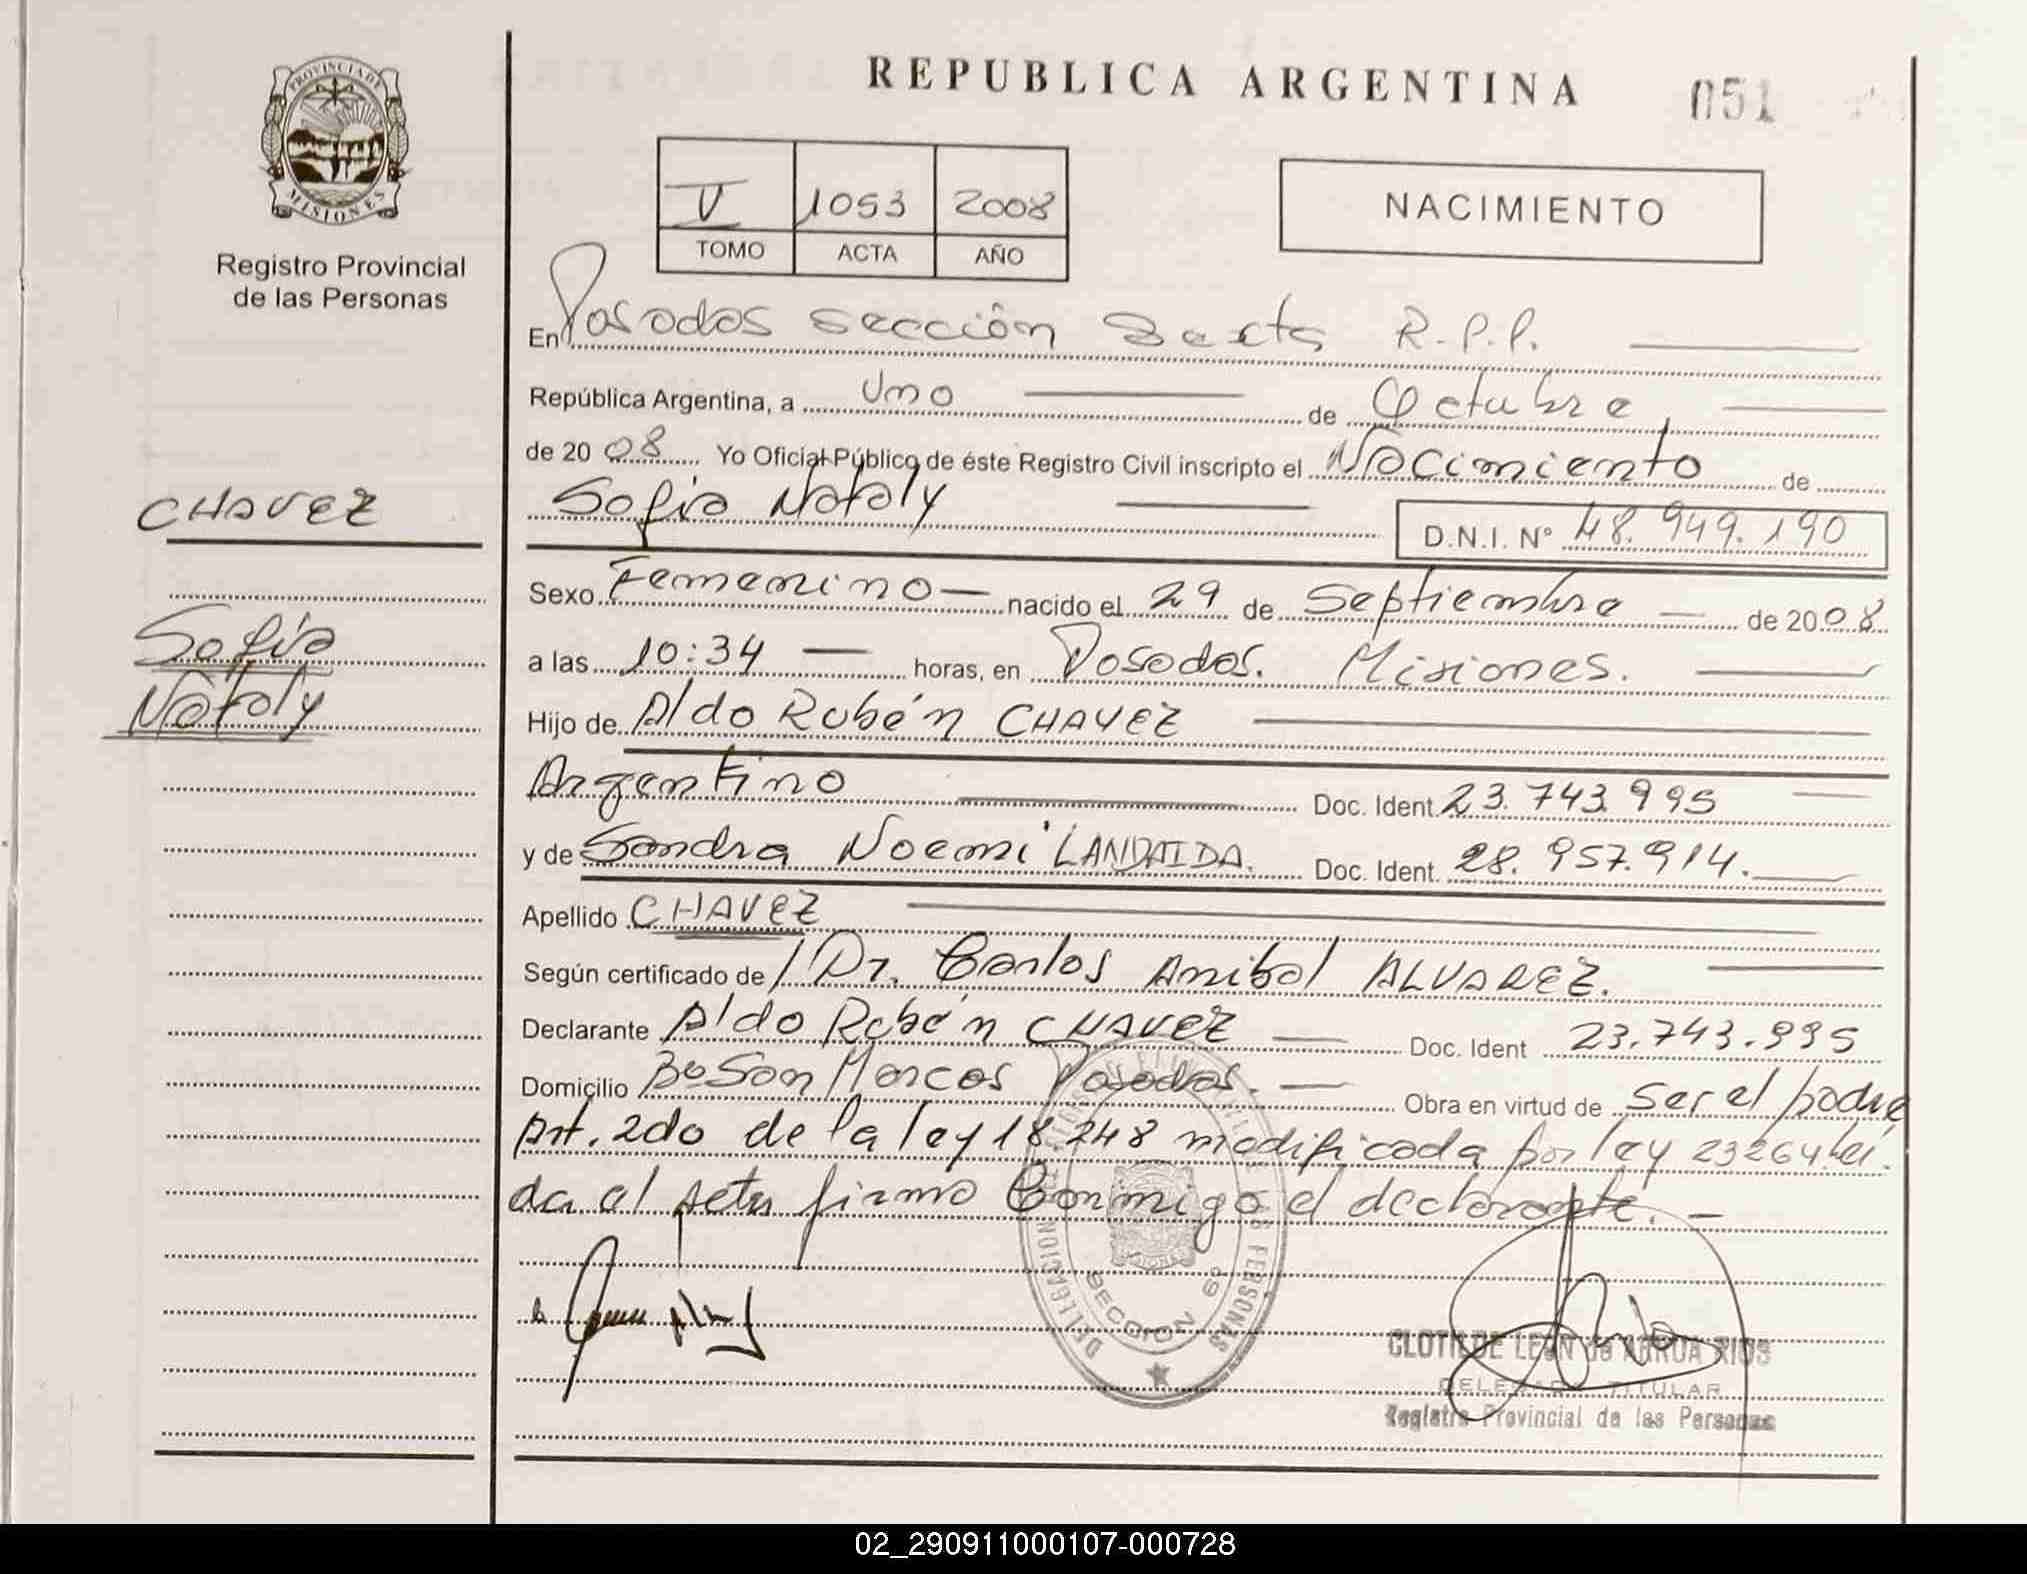 REPUBLICA ARGENTINA
051
PROVINCIA DE
MISIONES
Registro Provincial
de las Personas
V 1053 2008
TOMO ACTA AÑO
NACIMIENTO
En Posadas sección Sexta R.P.P.
República Argentina, a Uno de Octubre
de 2008 Yo Oficial Público de éste Registro Civil inscripto el Nacimiento de
Sofia Nataly D.N.I. Nº 48.949.190
CHAVEZ
Sofia
Nataly
Sexo Femenino nacido el 29 de Septiembre de 2008
a las 10:34 horas, en Posadas. Misiones.
Hijo de Aldo Rubén CHAVEZ
Argentino Doc. Ident. 23.743.995
y de Sandra Noemi LANDAIDA. Doc. Ident. 28.957.914.
Apellido CHAVEZ
Según certificado de Dr. Carlos Anibal ALVAREZ.
Declarante Aldo Rubén CHAVEZ Doc. Ident 23.743.995
Domicilio Bº San Marcos Posadas. Obra en virtud de ser el padre
Art. 2do de la ley 18.248 modificada por ley 23264 lei
da el acta firma Conmigo el declarante.
DELEGACION PERSONAS
SECCION 6º
CLOTILDE LEON de ARRUA RIOS
DELEGADA TITULAR
Registro Provincial de las Personas
02_290911000107-000728